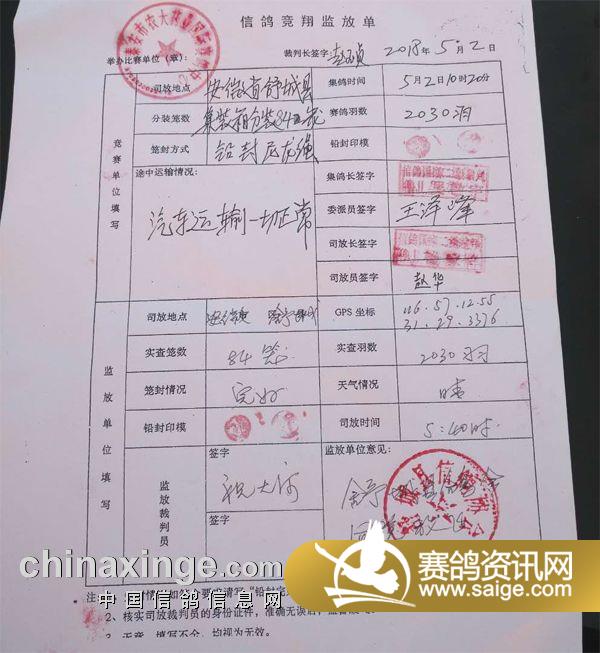 信鸽竞翔监放单
举办比赛单位（章）：
裁判长签字： 2018年5月2日
竞赛单位填写
司放地点 安徽省舒城县 集鸽时间 5月2日10时20分
分装笼数 集装箱分装84 赛鸽羽数 2030羽
笼封方式 铅封尼龙绳 铅封印模
途中运输情况： 集鸽长签字
汽车运输一切正常 委派员签字 王泽峰
司放长签字
司放员签字 赵华
监放单位填写
司放地点 GPS 坐标 116.57.12.55
31.29.3376
实查笼数 84笼 实查羽数 2030羽
笼封情况 完好 天气情况 晴
铅封印模 司放时间 5:40时
监放裁判员 签字 监放单位意见：
祝大河
签字
chinaxinge.com
中国信鸽信息网
赛鸽资讯网
www.saige.com
2、核实司放裁判员的身份证件，准确无误后，
3、无章、填写不全、均视为无效。